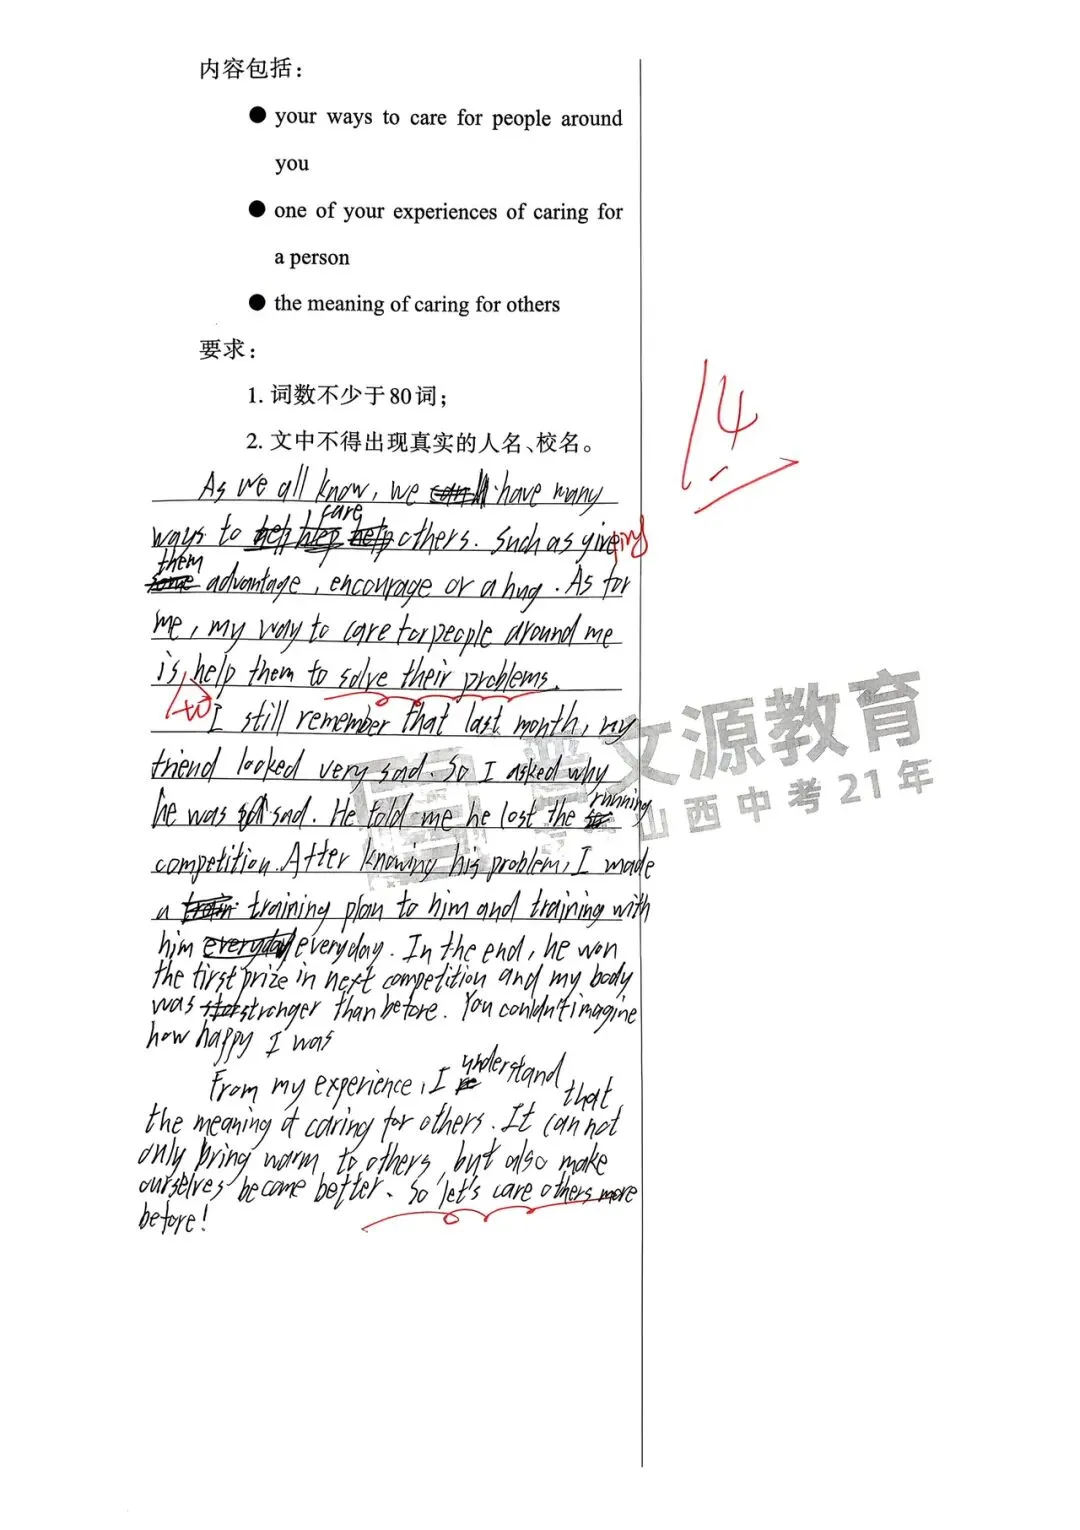 内容包括：
● your ways to care for people around
you
● one of your experiences of caring for
a person
● the meaning of caring for others
要求：
1. 词数不少于80词；
2. 文中不得出现真实的人名、校名。
14
As we all know, we have many
ways to care others. Such as give ing
them advantage, encourage or a hug. As for
me, my way to care for people around me
is help them to solve their problems.
to
I still remember that last month, my
friend looked very sad. So I asked why
he was sad. He told me he lost the running
competition. After knowing his problem, I made
a training plan to him and training with
him everyday. In the end, he won
the first prize in next competition and my body
was stronger than before. You couldn't imagine
how happy I was
From my experience, I understand that
the meaning of caring for others. It can not
only bring warm to others, but also make
ourselves become better. So let's care others more
before!
晋文源教育
山西中考21年